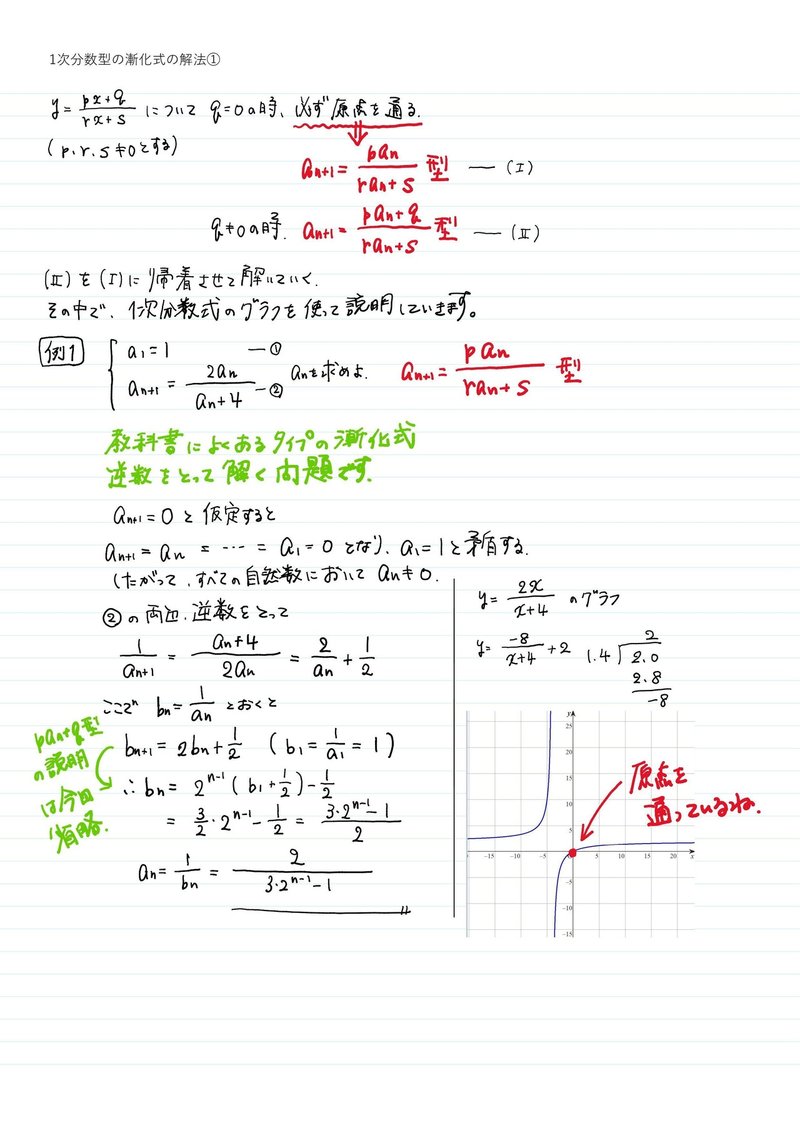 1次分数型の漸化式の解法①
y = (px+q)/(rx+s) について q=0の時、必ず原点を通る.
(p, r, s ≠0とする)
⇓
an+1 = pan/(ran+s) 型 — (I)
q≠0の時. an+1 = (pan+q)/(ran+s) 型 — (II)
(II) を (I) に帰着させて解いていく.
その中で、1次分数式のグラフを使って説明していきます。
例1
a1=1 —①
an+1 = 2an/(an+4) —② anを求めよ.
an+1 = pan/(ran+s) 型
教科書によくあるタイプの漸化式
逆数をとって解く問題です.
an+1=0 と仮定すると
an+1 = an = … = a1 = 0 となり、a1=1と矛盾する.
したがって、すべての自然数において an≠0.
②の両辺、逆数をとって
1/an+1 = (an+4)/2an = 2/an + 1/2
ここで bn = 1/an とおくと
bn+1 = 2bn + 1/2 (b1 = 1/a1 = 1)
∴ bn = 2^(n-1) (b1 + 1/2) - 1/2
= 3/2・2^(n-1) - 1/2 = (3・2^(n-1) - 1)/2
an = 1/bn = 2/(3・2^(n-1) - 1)
pan+q型
の説明
は今回
省略.
y = 2x/(x+4) のグラフ
y = -8/(x+4) + 2
2
1.4 2.0
2.8
-8
原点を
通っているね.
25
20
15
10
5
-15 -10 -5 5 10 15 20
-5
-10
-15